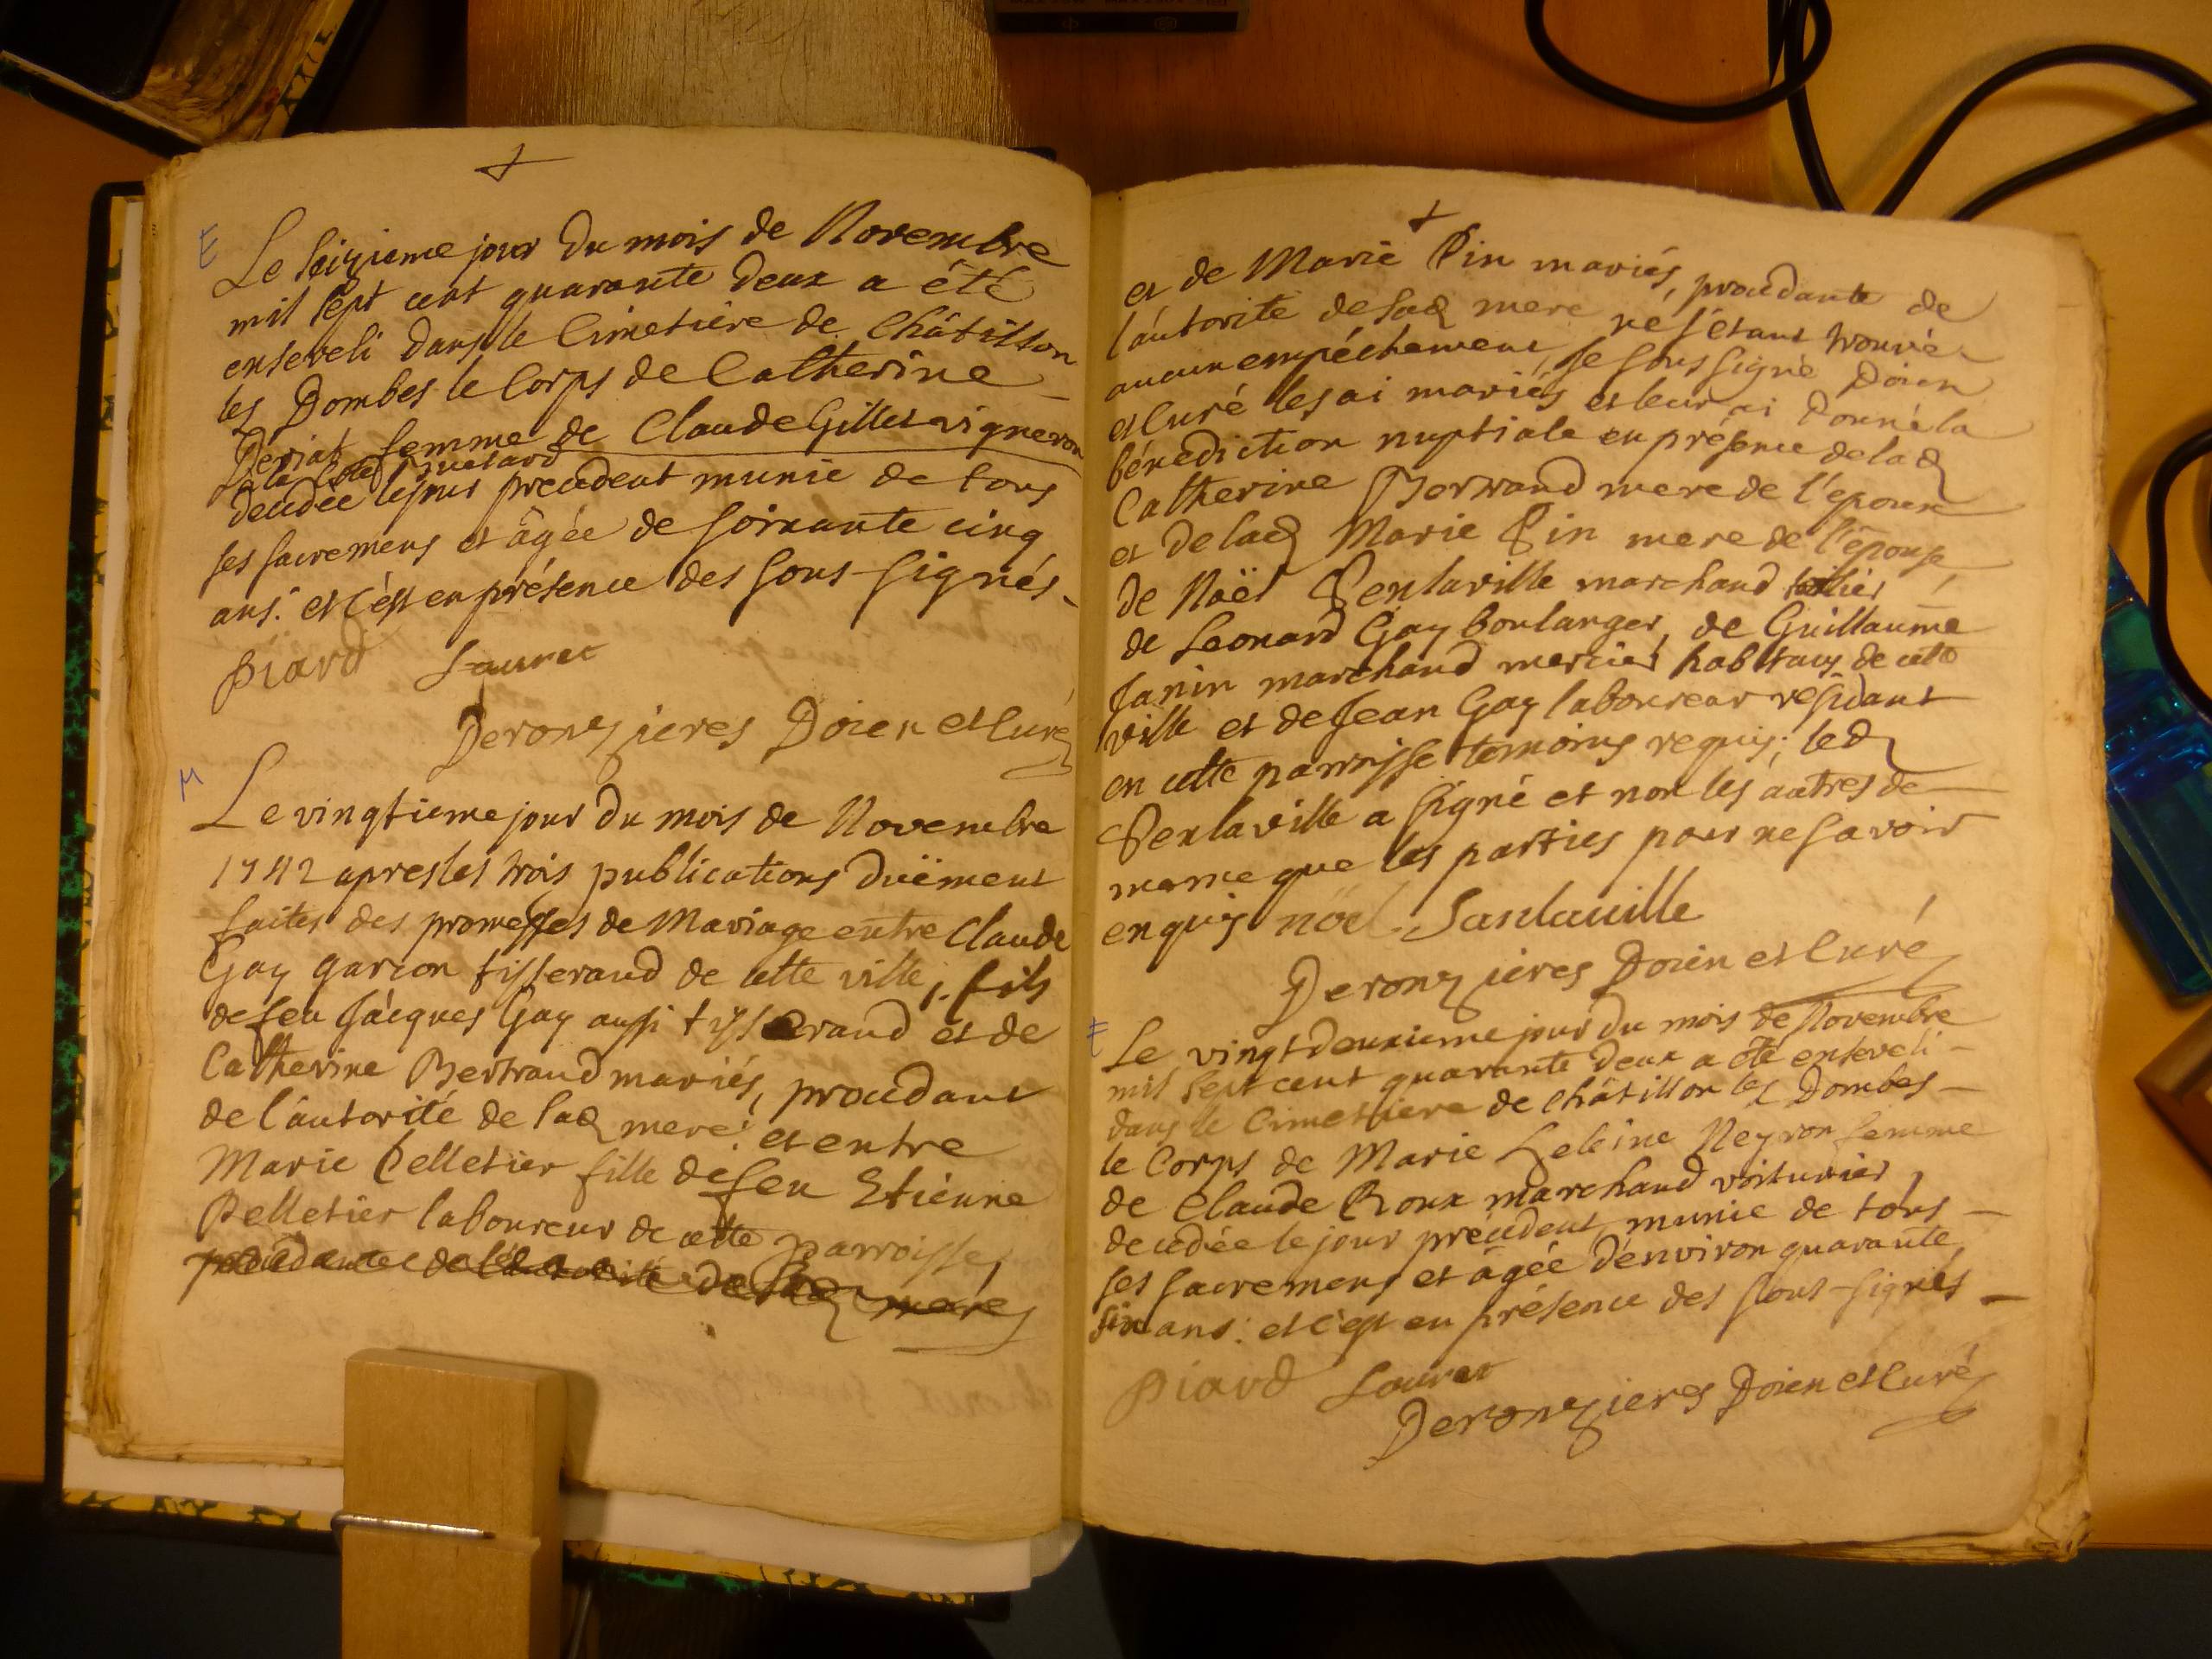 E
Le seizieme jour du mois de Novembre
mil sept cent quarante deux a été
enseveli dans le Cimetière de Châtillon
les Dombes le Corps de Catherine
Periat femme de Claude Gillet vigneron
de la
decedée le jour precedent munie de tous
ses sacremens et âgée de soixante cinq
ans: et c'est en présence des sous-signés.
Piard Lauret
Deronzieres Doien et Curé
M
Le vingtieme jour du mois de Novembre
1742 apres les trois publications duëment
faites des promesses de Mariage entre Claude
Gay garcon tisserand de cette ville, fils
de feu Jâcques Gay aussi tisserand et de
Catherine Bertrand mariés, procedant
de l'autorité de lad mere: et entre
Marie Pelletier fille de feu Etienne
Pelletier laboureur de cette parroisse,
procedante de l'autorité de sad mere
et de Marie Pin mariés, procedante de
l'autorité de sad mere, ne s'étant trouvé
aucun empéchement, Je sous signé Doien
et Curé les ai mariés et leur ai donné la
bénediction nuptiale en présence de lad
Catherine Bertrand mere de l'epoux
et de lad Marie Pin mere de l'épouse
de Noël Senlaville marchand
de Leonard Gay boulanger, de Guillaume
Janin marchand mercier habitans de cette
ville et de Jean Gay laboureur residant
en cette parroisse temoins requis; led
Senlaville a signé et non les autres de
meme que les parties pour ne savoir
enquis nöel Sanlauille
Deronzieres Doien et Curé
E
Le vingt deuxieme jour du mois de Novembre
mil sept cent quarante deux a été enseveli -
dans le Cimetiere de châtillon les Dombes -
le Corps de Marie Heleine Neyron femme
de Claude Roux marchand voiturier,
decedée le jour précedent, munie de tous -
ses sacremens et âgée d'environ quarante
six ans: et c'est en présence des sous-signés -
Piard Lauret
Deronzieres Doien et Curé